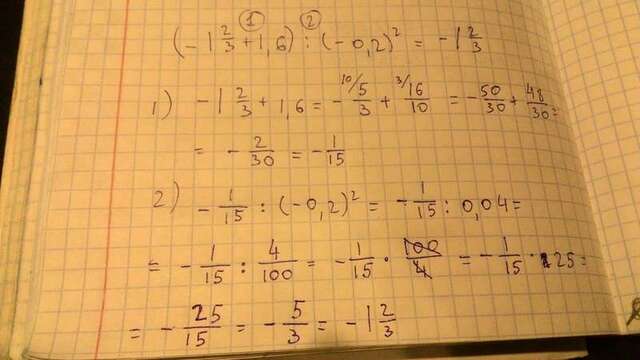 ① ②
(-1 2/3 + 1,6) : (-0,2)² = -1 2/3
1) -1 2/3 + 1,6 = - 10/ 5/3 + 3/ 16/10 = - 50/30 + 48/30 =
= - 2/30 = - 1/15
2) - 1/15 : (-0,2)² = - 1/15 : 0,04 =
= - 1/15 : 4/100 = - 1/15 · 100/4 = - 1/15 · 25 =
= - 25/15 = - 5/3 = -1 2/3